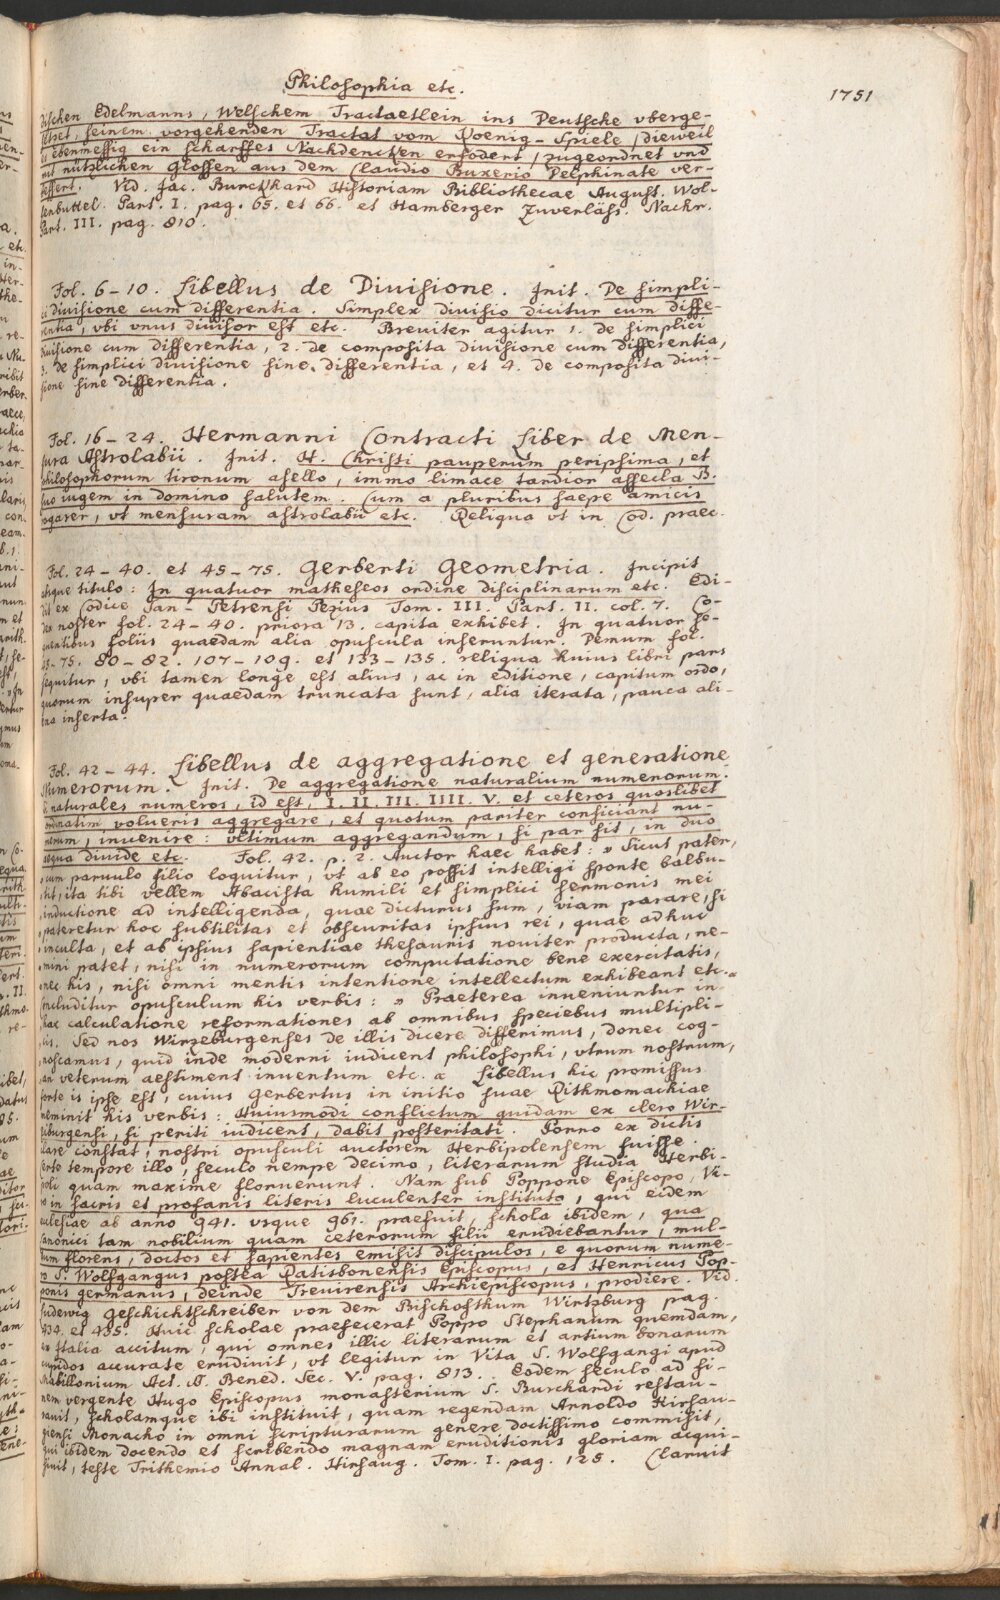 Philosophia etc.
1751
dischen Edelmanns, Welschem Tractaetlein ins Deutsche vberge-
setzet, seinem vorgehenden Tractat vom Koenig-Spiele, dieweil
es ebenmessig ein scharffes Nachdencken erfodert, zugeordnet vnd
mit nützlichen Glossen aus dem Claudio Buxerio Delphinate ver-
bessert. Vid. Jac. Burckhard Historiam Bibliothecae August. Wol-
fenbuttel. Part. I. pag. 65. et 66. et Hamberger Zuverläss. Nachr.
Part. III. pag. 810.
Fol. 6-10. Libellus de Diuisione. Init. De simpli-
ci diuisione cum differentia. Simplex diuisio dicitur cum diffe-
rentia, vbi vnus diuisor est etc. Breuiter agitur 1. de simplici
diuisione cum differentia, 2. de composita diuisione cum differentia,
3. de simplici diuisione sine differentia, et 4. de composita diui-
sione sine differentia.
Fol. 16-24. Hermanni Contracti Liber de Men-
sura Astrolabii. Init. H. Christi pauperum peripsima, et
philosophorum tironum asello, immo limace tardior assecla B.
suo iugem in domino salutem. Cum a pluribus saepe amicis
rogarer, vt mensuram astrolabii etc. Reliqua vt in Cod. praec.
Fol. 24-40. et 45-75. Gerberti Geometria. Incipit
absque titulo: In quatuor matheseos ordine disciplinarum etc. Edi-
dit ex Codice San-Petrensi Pezius Tom. III. Part. II. col. 7. Co-
dex noster fol. 24-40. priora 13. capita exhibet. In quatuor se-
quentibus foliis quaedam alia opuscula inseruntur. Demum fol.
45-75. 80-82. 107-109. et 133-135. reliqua huius libri pars
sequitur, vbi tamen longe est alius, ac in editione, capitum ordo,
quorum insuper quaedam truncata sunt, alia iterata, pauca ali-
ena inserta.
Fol. 42-44. Libellus de aggregatione et generatione
Numerorum. Init. De aggregatione naturalium numerorum.
Si naturales numeros, id est, I. II. III. IIII. V. et ceteros quoslibet
ordinatim volueris aggregare, et quotum pariter conficiant nu-
merum, inuenire: vltimum aggregandum, si par sit, in duo
aequa diuide etc. Fol. 42. p. 2. Auctor haec habet: „Sicut pater,
„cum paruulo filio loquitur, vt ab eo possit intelligi sponte balbu-
„tit, ita tibi vellem Abacista humili et simplici sermonis mei
„inductione ad intelligenda, quae dicturus sum, viam parare, si
„pateretur hoc subtilitas et obscuritas ipsius rei, quae adhuc
„inculta, et ab ipsius sapientiae thesauris nouiter producta, ne-
„mini patet, nisi in numerorum computatione bene exercitatis,
„nec his, nisi omni mentis intentione intellectum exhibeant etc.“
Concluditur opusculum his verbis: „Praeterea inueniuntur in
„hac calculatione reformationes ab omnibus speciebus multipli-
„cis. Sed nos Wirzeburgenses de illis dicere differimus, donec cog-
„noscamus, quid inde moderni iudicent philosophi, vtrum nostrum,
„an veterum aestiment inuentum etc.“ Libellus hic promissus
forte is ipse est, cuius Gerbertus in initio suae Rithmomachiae
meminit his verbis: Huiusmodi conflictum quidam ex clero Wir-
ziburgensi, si periti iudicent, dabit posteritati. Porro ex dictis
clare constat, nostri opusculi auctorem Herbipolensem fuisse.
Certo tempore illo, seculo nempe decimo, literarum studia Herbi-
poli quam maxime floruerunt. Nam sub Poppone Episcopo, Vi-
ro in sacris et profanis literis luculenter instituto, qui eidem
ecclesiae ab anno 941. vsque 961. praefuit, schola ibidem, qua
canonici tam nobilium quam ceterorum filii erudiebantur, mul-
tum florens, doctos et sapientes emisit discipulos, e quorum nume-
ro S. Wolfgangus postea Ratisbonensis Episcopus, et Henricus Pop-
ponis germanus, deinde Treuirensis Archiepiscopus, prodiere. Vid.
Ludewig Geschichtschreiber von dem Bischofthum Wirtzburg pag.
434. et 435. Huic scholae praefecerat Poppo Stephanum quemdam,
ex Italia accitum, qui omnes illic literarum et artium bonarum
cupidos accurate erudiuit, vt legitur in Vita S. Wolfgangi apud
Mabillonium Act. SS. Bened. Sec. V. pag. 813. Eodem seculo ad fi-
nem vergente Hugo Episcopus monasterium S. Burchardi restau-
rauit, scholamque ibi instituit, quam regendam Arnoldo Hirsau-
giensi Monacho in omni scripturarum genere doctissimo commisit,
qui ibidem docendo et scribendo magnam eruditionis gloriam acqui-
siuit, teste Trithemio Annal. Hirsaug. Tom. I. pag. 125. Claruit